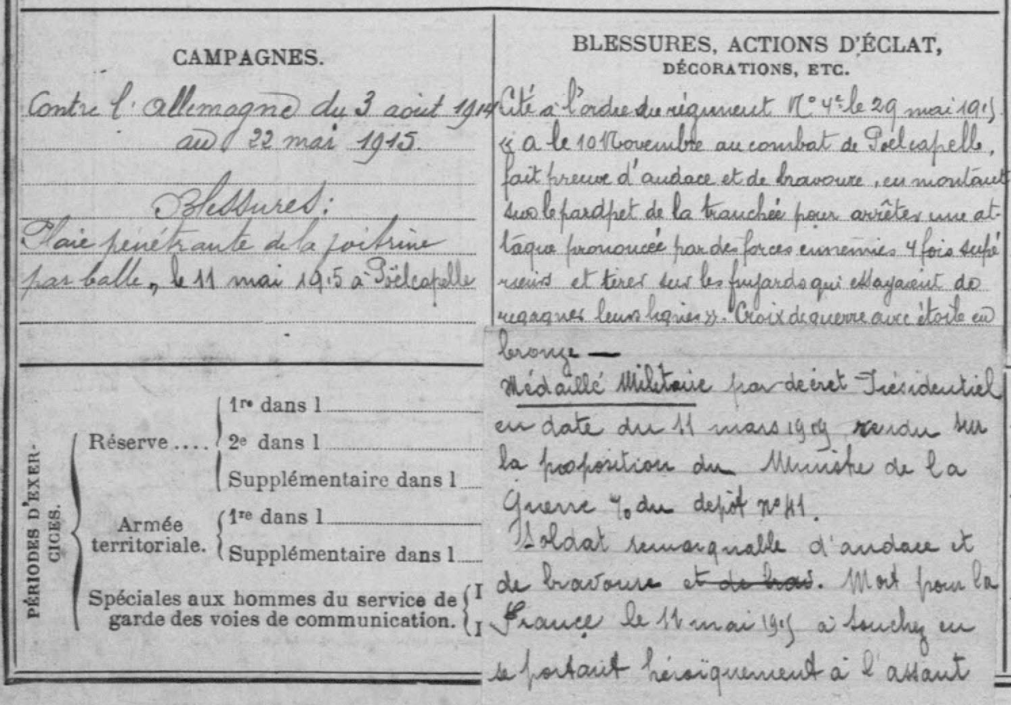 CAMPAGNES.
Contre l'allemagne du 3 août 1914
au 22 mai 1915.
Blessures:
Plaie pénétrante de la poitrine
par balle, le 11 mai 1915 à Poëlcapelle
BLESSURES, ACTIONS D'ÉCLAT,
DÉCORATIONS, ETC.
Cité à l'ordre du régiment N° 4 le 29 mai 1915
« a le 10 Novembre au combat de Poelcapelle,
fait preuve d'audace et de bravoure, en montant
sur le pardpet de la tranchée pour arrêter une at-
taque prononcée par des forces ennemies 4 fois supé
rieurs et tirer sur les fuyards qui essayaient de
regagner leurs lignes ». Croix de guerre avec étoile en
bronze —
Médaille Militaire par décret Présidentiel
en date du 11 mars 1919, rendu sur
la proposition du Ministre de la
Guerre du depôt n° 41.
Soldat remarquable d'audace et
de bravoure et de brav. Mort pour la
France le 11 mai 1915 à Souchez en
se portant héroïquement à l'assaut
PÉRIODES D'EXER-
CICES.
Réserve ....
1re dans l
2e dans l
Supplémentaire dans l
Armée
territoriale.
1re dans l
Supplémentaire dans l
Spéciales aux hommes du service de
garde des voies de communication.